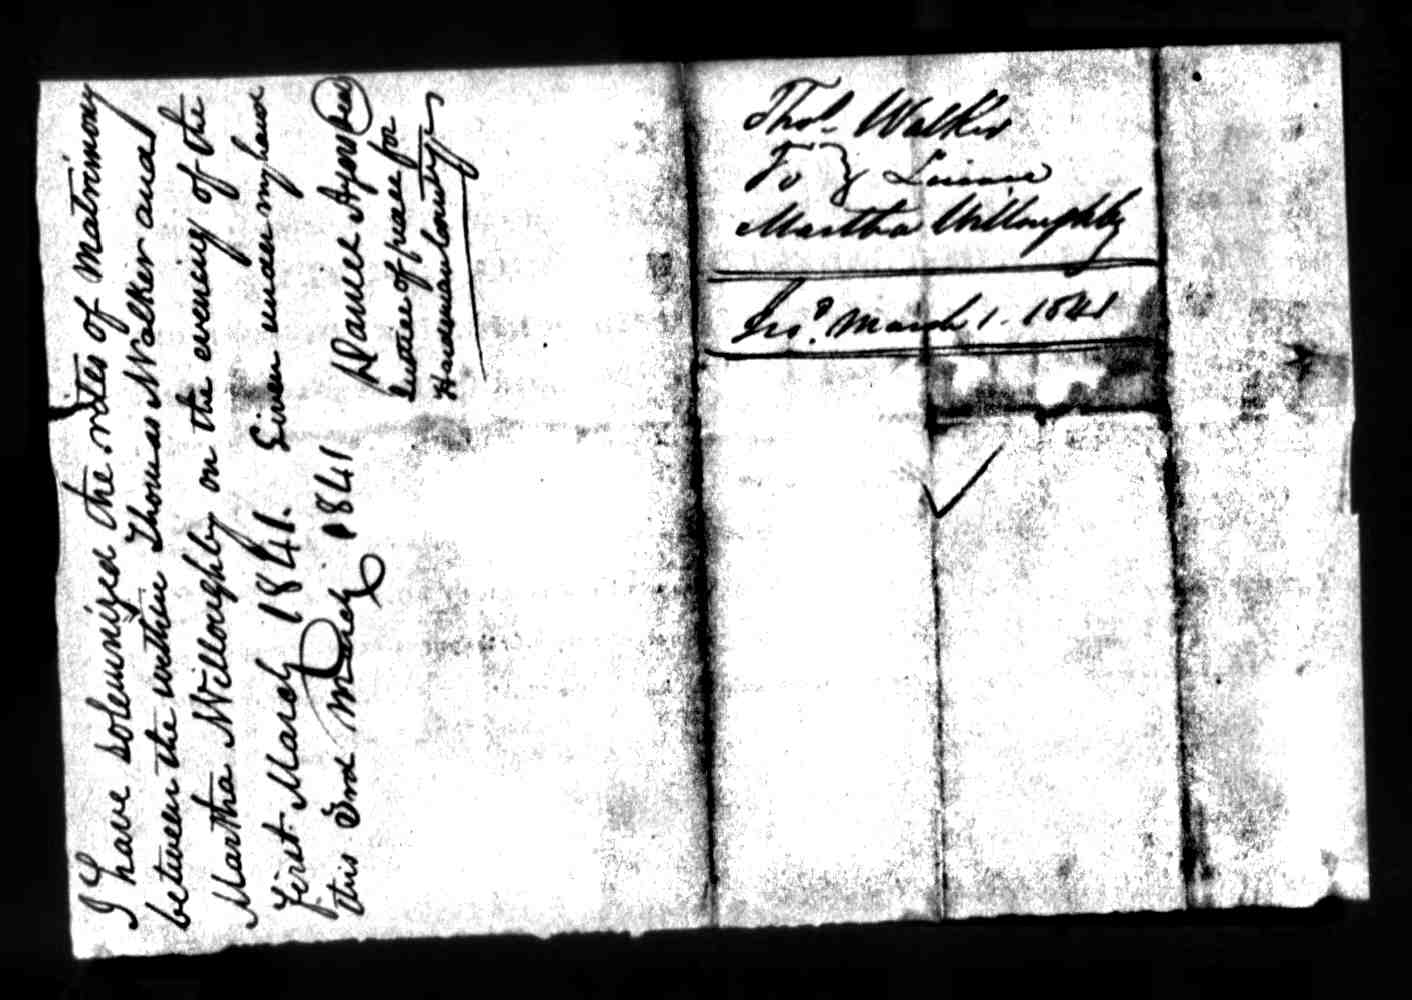 I have solemnized the rites of Matrimony
between the within Thomas Walker and
Martha Willoughby on the evening of the
first March 1841. Given under my hand
this 2nd March 1841
Daniel Ayers
Justice of peace for
Hardeman County
Thos. Walker
To } License
Martha Willoughby
March 1. 1841